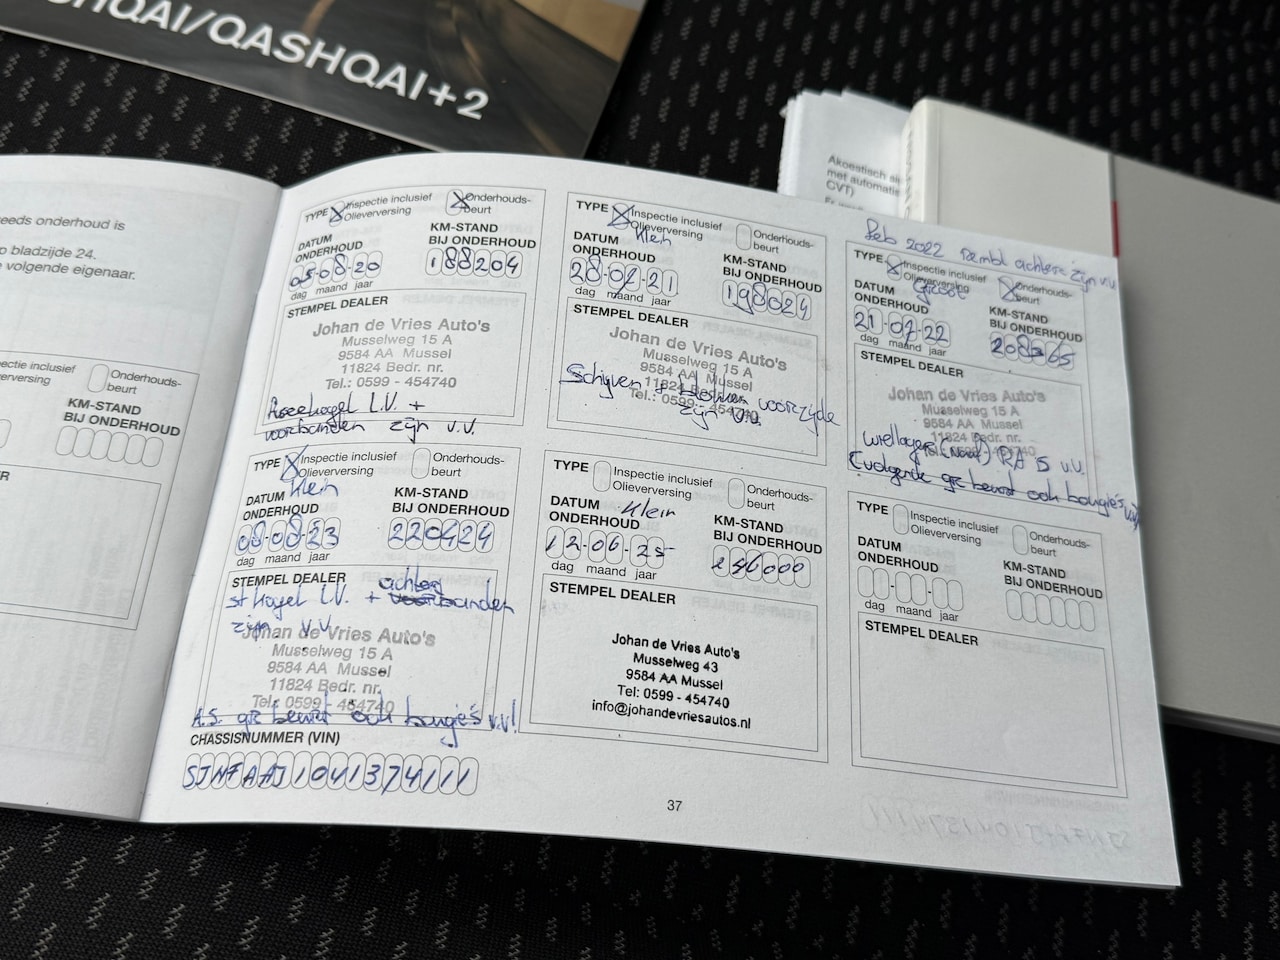 HQAI/QASHQAI+2
Akoestisch
met automatie
CVT)
eeds onderhoud is
p bladzijde 24.
e volgende eigenaar.
pectie inclusief
ieverversing
Onderhouds-
beurt
KM-STAND
BIJ ONDERHOUD
R
TYPE Inspectie inclusief Olieverversing
Onderhouds-
beurt
DATUM ONDERHOUD
KM-STAND
BIJ ONDERHOUD
05-08-20
188204
dag maand jaar
STEMPEL DEALER
Johan de Vries Auto's
Musselweg 15 A
9584 AA Mussel
11824 Bedr. nr.
Tel.: 0599 - 454740
L.V. +
voorbanden zijn v.v.
TYPE Inspectie inclusief Olieverversing
Onderhouds-
beurt
Klein
DATUM ONDERHOUD
KM-STAND
BIJ ONDERHOUD
28-07-21
198024
dag maand jaar
STEMPEL DEALER
Johan de Vries Auto's
Musselweg 15 A
9584 AA Mussel
11824 Bedr. nr.
Tel.: 0599 - 454740
Schijven + blokken voorzijde
zijn v.v.
Feb 2022 rembl achter zijn v.v.
TYPE Inspectie inclusief Olieverversing
Onderhouds-
beurt
Groot
DATUM ONDERHOUD
KM-STAND
BIJ ONDERHOUD
21-07-22
dag maand jaar
STEMPEL DEALER
Johan de Vries Auto's
Musselweg 15 A
9584 AA Mussel
11824 Bedr. nr.
Tel.: 0599 - 454740
wiellager (naaf) R.A is v.v.
(volgende gr beurt ook bougie's v.v.)
TYPE Inspectie inclusief Olieverversing
Onderhouds-
beurt
Klein
DATUM ONDERHOUD
KM-STAND
BIJ ONDERHOUD
08-08-23
220424
dag maand jaar
STEMPEL DEALER
achter
st kogel L.V. + voorbanden
zijn v.v.
Johan de Vries Auto's
Musselweg 15 A
9584 AA Mussel
11824 Bedr. nr.
Tel.: 0599 - 454740
A.S. gr beurt ook bougie's v.v!
TYPE Inspectie inclusief Olieverversing
Onderhouds-
beurt
Klein
DATUM ONDERHOUD
KM-STAND
BIJ ONDERHOUD
12-06-25
246000
dag maand jaar
STEMPEL DEALER
Johan de Vries Auto's
Musselweg 43
9584 AA Mussel
Tel: 0599 - 454740
info@johandevriesautos.nl
TYPE Inspectie inclusief Olieverversing
Onderhouds-
beurt
DATUM ONDERHOUD
KM-STAND
BIJ ONDERHOUD
dag maand jaar
STEMPEL DEALER
CHASSISNUMMER (VIN)
SJNFAAJ10U1374111
37